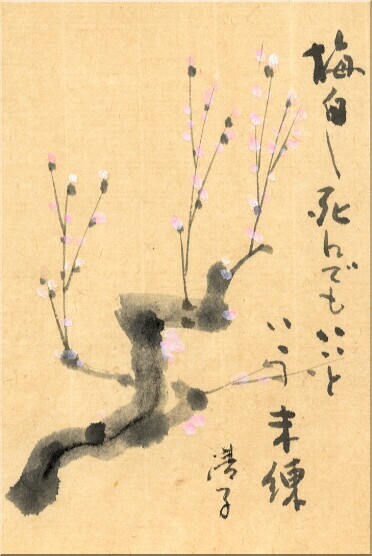 梅白し死んでもいいと
いう未練